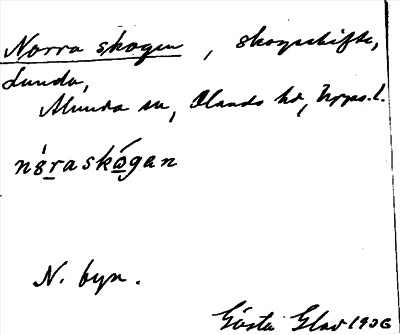 Norra skogen, skogsskifte,
Lunda,
Alunda sn, Olands hd, Upps. l.
nǒraskógan
N. byn.
Gösta Glad 1936